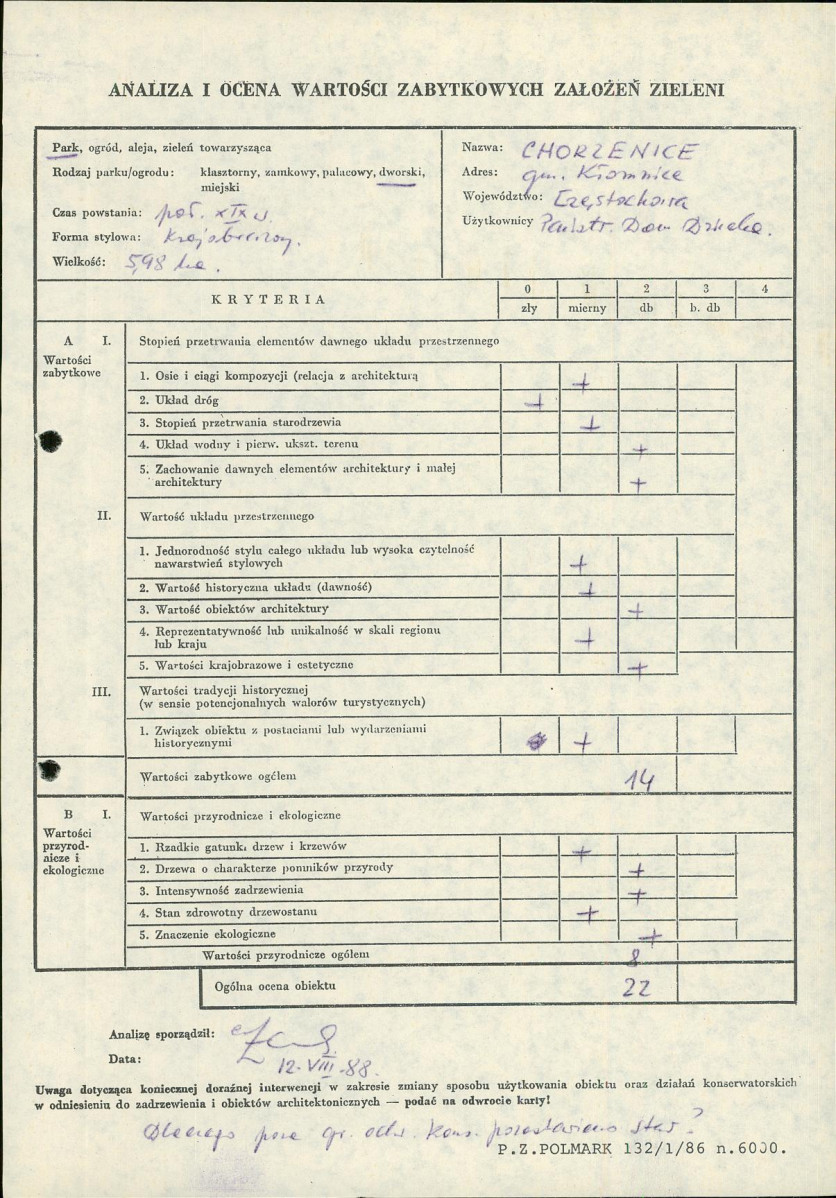 ANALIZA I OCENA WARTOŚCI ZABYTKOWYCH ZAŁOŻEŃ ZIELENI
Park, ogród, aleja, zieleń towarzysząca
Rodzaj parku/ogrodu: klasztorny, zamkowy, pałacowy, dworski,
miejski
Czas powstania: poł. XIX w
Forma stylowa: Krajobrazowy.
Wielkość: 5,98 ha.
Nazwa: CHORZENICE
Adres: gm. Kłomnice
Województwo: Częstochowa
Użytkownicy Państ. Dom Dziecka.
KRYTERIA
0 1 2 3 4
zły mierny db b. db
A I. Stopień przetrwania elementów dawnego układu przestrzennego
Wartości
zabytkowe
1. Osie i ciągi kompozycji (relacja z architekturą +
2. Układ dróg +
3. Stopień przetrwania starodrzewia +
4. Układ wodny i pierw. ukszt. terenu +
5. Zachowanie dawnych elementów architektury i małej
architektury +
II. Wartość układu przestrzennego
1. Jednorodność stylu całego układu lub wysoka czytelność
nawarstwień stylowych +
2. Wartość historyczna układu (dawność) +
3. Wartość obiektów architektury +
4. Reprezentatywność lub unikalność w skali regionu
lub kraju +
5. Wartości krajobrazowe i estetyczne +
III. Wartości tradycji historycznej
(w sensie potencjonalnych walorów turystycznych)
1. Związek obiektu z postaciami lub wydarzeniami
historycznymi +
Wartości zabytkowe ogółem 14
B I. Wartości przyrodnicze i ekologiczne
Wartości
przyrod-
nicze i
ekologiczne
1. Rzadkie gatunki drzew i krzewów +
2. Drzewa o charakterze pomników przyrody +
3. Intensywność zadrzewienia +
4. Stan zdrowotny drzewostanu +
5. Znaczenie ekologiczne +
Wartości przyrodnicze ogółem 8
Ogólna ocena obiektu 22
Analizę sporządził:
Data: 12-VIII-88.
Uwaga dotycząca koniecznej doraźnej interwencji w zakresie zmiany sposobu użytkowania obiektu oraz działań konserwatorskich
w odniesieniu do zadrzewienia i obiektów architektonicznych — podać na odwrocie karty!
Dlaczego poza gr. ochr. kons. pozostawiono staw?
P.Z.POLMARK 132/1/86 n.6000.